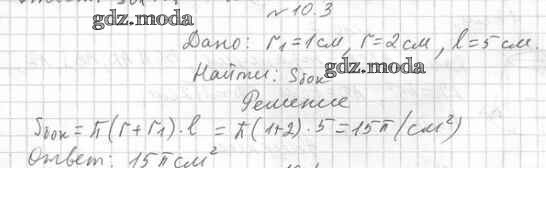 gdz.moda
№ 10.3
Дано: r₁=1см, r=2см, l=5 см.
Найти: Sбок
gdz.moda
Решение
Sбок = π(r+r₁)·l = π(1+2)·5=15π(см²)
Ответ: 15π см²